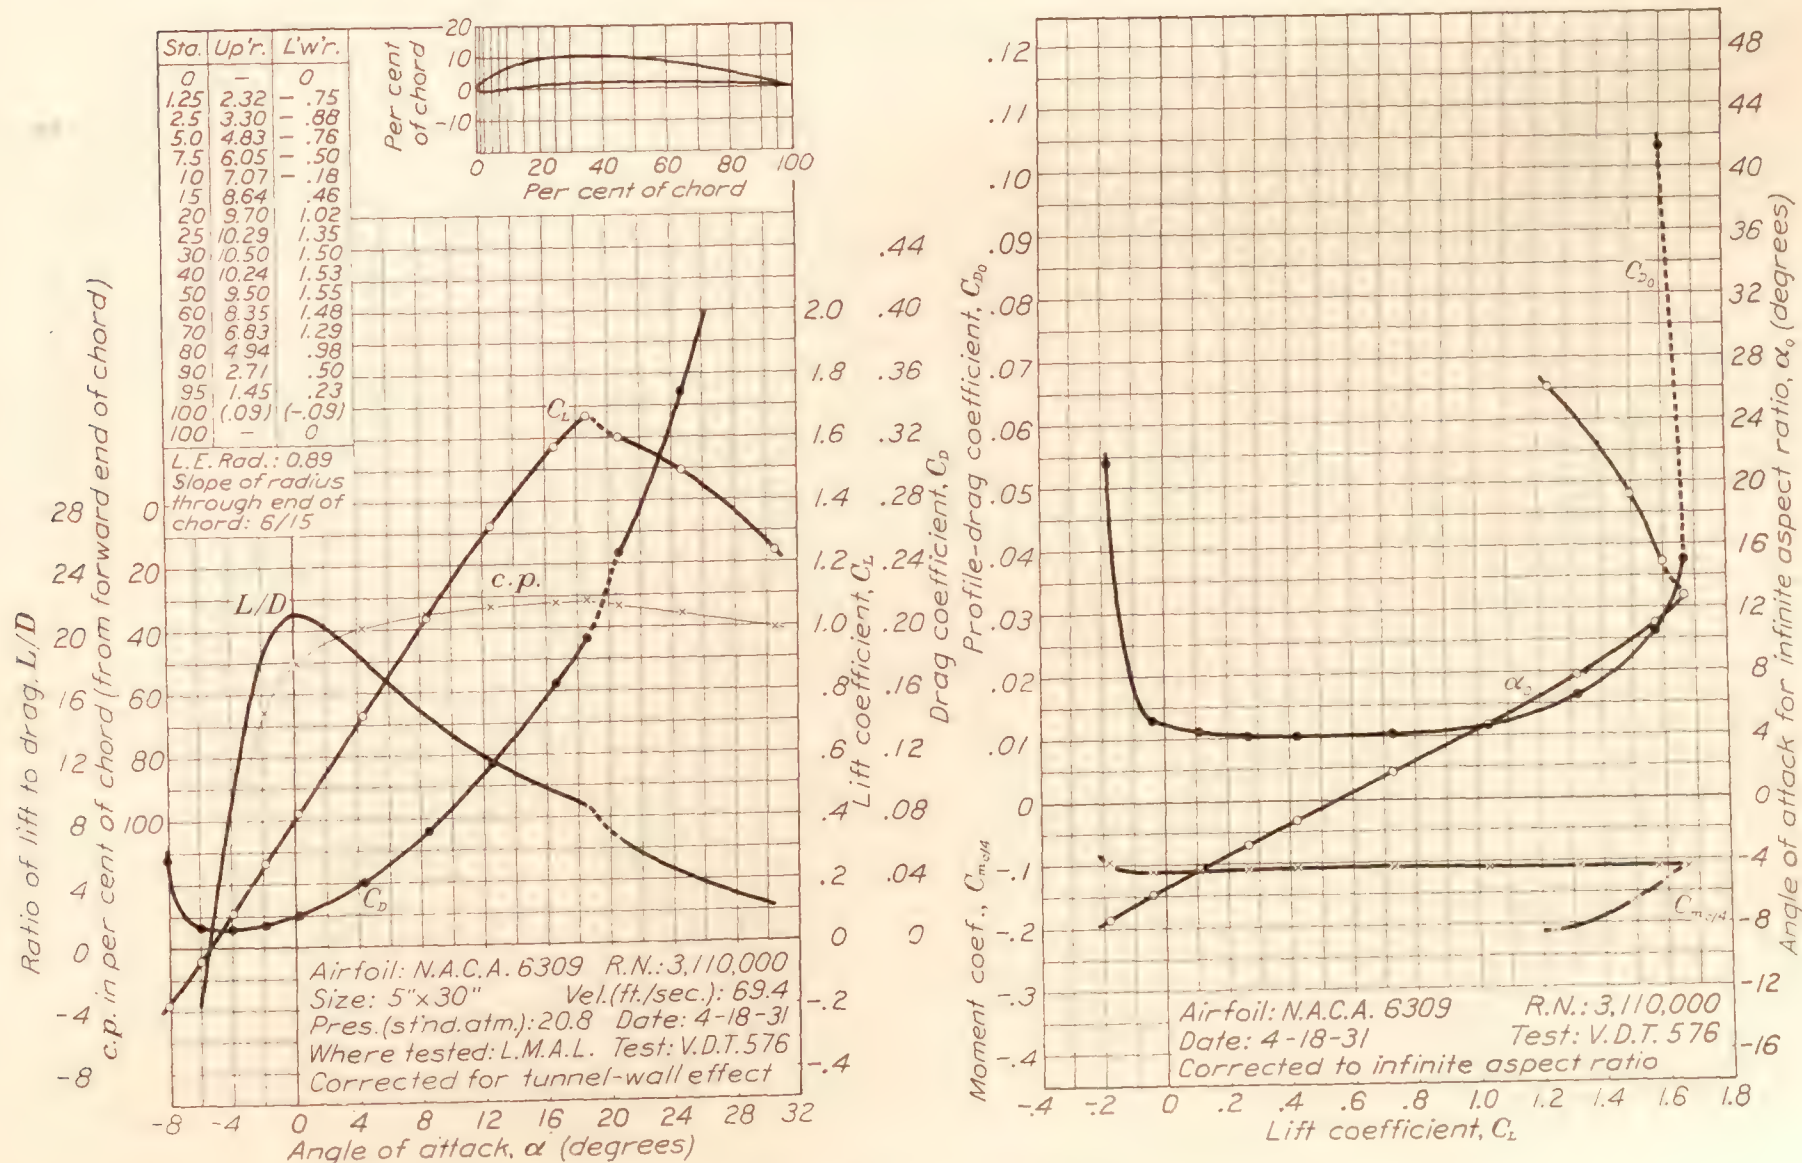 Sta. Up'r. L'w'r.
0 – 0
1.25 2.32 – .75
2.5 3.30 – .88
5.0 4.83 – .76
7.5 6.05 – .50
10 7.07 – .18
15 8.64 .46
20 9.70 1.02
25 10.29 1.35
30 10.50 1.50
40 10.24 1.53
50 9.50 1.55
60 8.35 1.48
70 6.83 1.29
80 4.94 .98
90 2.71 .50
95 1.45 .23
100 (.09) (-.09)
100 – 0
L.E. Rad.: 0.89
Slope of radius
through end of
chord: 6/15
Per cent
of chord
20
10
0
-10
0 20 40 60 80 100
Per cent of chord
Ratio of lift to drag, L/D
28
24
20
16
12
8
4
0
-4
-8
c.p. in per cent of chord (from forward end of chord)
0
20
40
60
80
100
L/D
c.p.
C_L
C_D
2.0
1.8
1.6
1.4
1.2
1.0
.8
.6
.4
.2
0
-.2
-.4
Lift coefficient, C_L
.44
.40
.36
.32
.28
.24
.20
.16
.12
.08
.04
0
Drag coefficient, C_D
Airfoil: N.A.C.A. 6309 R.N.: 3,110,000
Size: 5"x30" Vel.(ft./sec.): 69.4
Pres.(st'nd. atm.): 20.8 Date: 4-18-31
Where tested: L.M.A.L. Test: V.D.T. 576
Corrected for tunnel-wall effect
-8 -4 0 4 8 12 16 20 24 28 32
Angle of attack, α (degrees)
Profile-drag coefficient, C_D0
.12
.11
.10
.09
.08
.07
.06
.05
.04
.03
.02
.01
0
Moment coef., C_mc/4
-.1
-.2
-.3
-.4
C_D0
α_0
C_mc/4
48
44
40
36
32
28
24
20
16
12
8
4
0
-4
-8
-12
-16
Angle of attack for infinite aspect ratio, α_0 (degrees)
Airfoil: N.A.C.A. 6309 R.N.: 3,110,000
Date: 4-18-31 Test: V.D.T. 576
Corrected to infinite aspect ratio
-.4 -.2 0 .2 .4 .6 .8 1.0 1.2 1.4 1.6 1.8
Lift coefficient, C_L